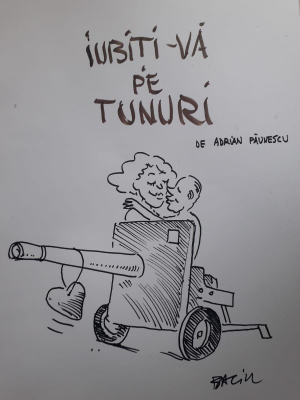 IUBIȚI-VĂ
PE
TUNURI
DE ADRIAN PĂUNESCU